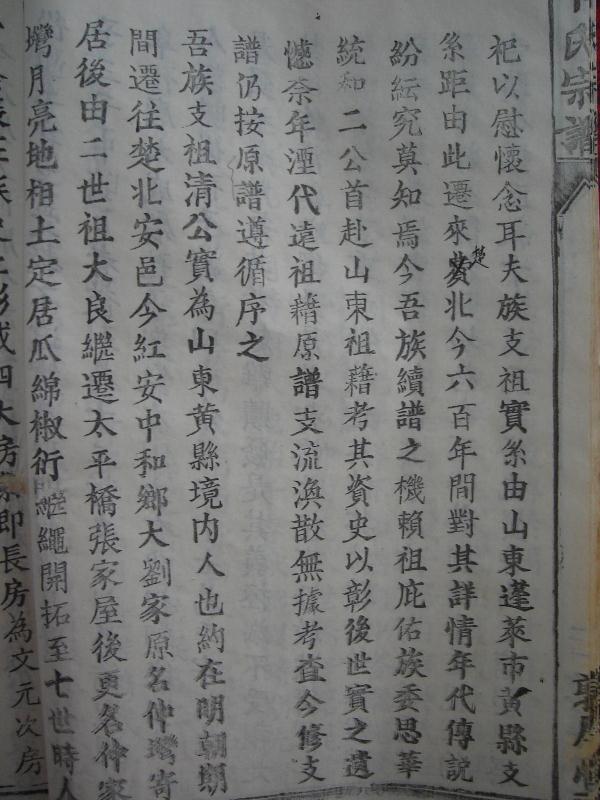 氏宗譜
祀以慰懷念耳夫族支祖實系由山東蓬萊市黃縣支
系距由此遷來楚北今六百年間對其詳情年代傳說
紛紜究莫知焉今吾族續譜之機賴祖庇佑族委思華
統和二公首赴山東祖籍考其資史以彰後世實之遺
憾奈年湮代遠祖籍原譜支流渙散無據考查今修支
譜仍按原譜遵循序之
吾族支祖清公實為山東黃縣境内人也約在明朝期
間遷往楚北安邑今紅安中和鄉大劉家原名仲灣寄
居後由二世祖大良繼遷太平橋張家屋後更名仲家
灣月亮地相土定居瓜綿椒衍繼繩開拓至七世時人
彭成四大房 即長房為文元次房